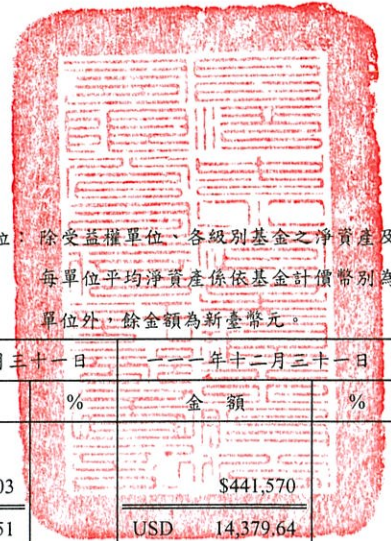 位：除受益權單位、各級別基金之淨資產及
每單位平均淨資產係依基金計價幣別為
單位外，餘金額為新臺幣元。
月三十一日 一一一年十二月三十一日
% 金額 %
03 $441,570
51 USD 14,379.64